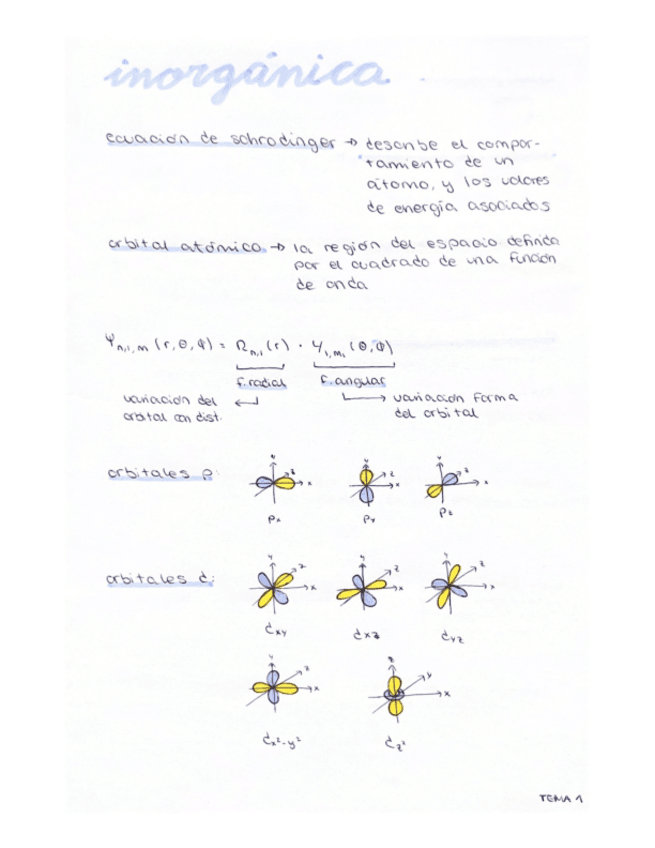 inorgánica
ecuación de schrodinger → describe el compor-
tamiento de un
átomo, y los valores
de energía asociados
orbital atómico → la región del espacio definida
por el cuadrado de una función
de onda
Ψn,l,m (r,θ,φ) = Rn,l (r) · Yl,ml (θ,φ)
f.radial f.angular
variación del
orbital con dist.
variación forma
del orbital
orbitales p:
y z x y z x y z x
px py pz
orbitales d:
y z x y z x y z x
dxy dxz dyz
y z x z y x
dx²-y² dz²
TEMA 1